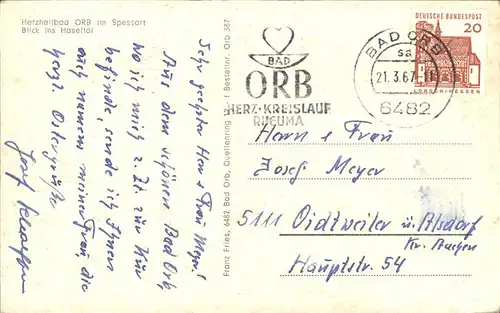 Herzheilbad ORB im Spessart
Blick ins Haseltal
Sehr geehrter Herr & Frau Meyer!
Aus dem schönen Bad Orb,
wo ich mich z. Zt. zur Kur
befinde, sende ich Ihnen
auch namens meiner Frau, die
herzl. Ostergrüße
Josef
Franz Friese, 6482 Bad Orb, Quellenring
Bestellnr. Orb 387
BAD
ORB
HERZ-KREISLAUF
RHEUMA
BAD ORB
sa
21.3.67
6482
DEUTSCHE BUNDESPOST
20
LORSCH/HESSEN
Herrn & Frau
Josef Meyer
5111 Oidtweiler ü. Alsdorf
Kr. Aachen
Hauptstr. 54